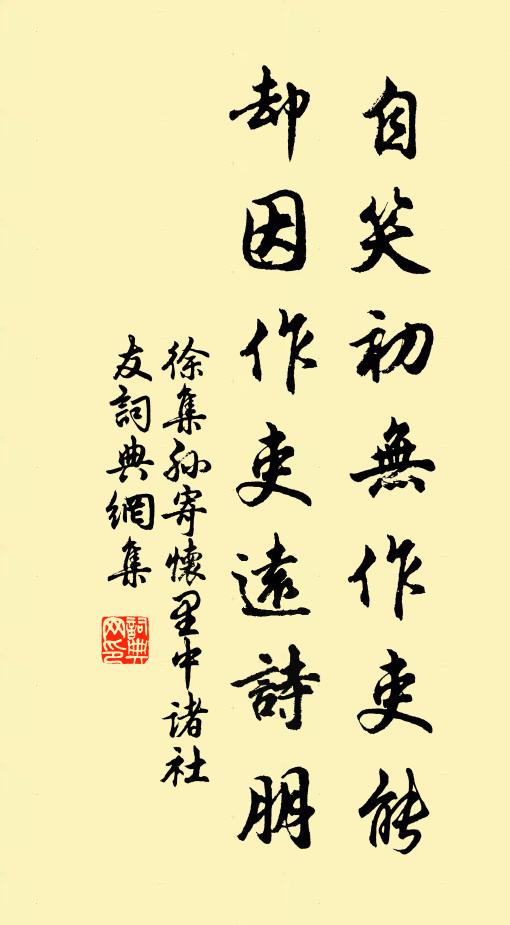 自笑初無作吏能
却因作吏遠詩朋
徐集孫寄懷里中諸社
友詞典網集
詞典
网印